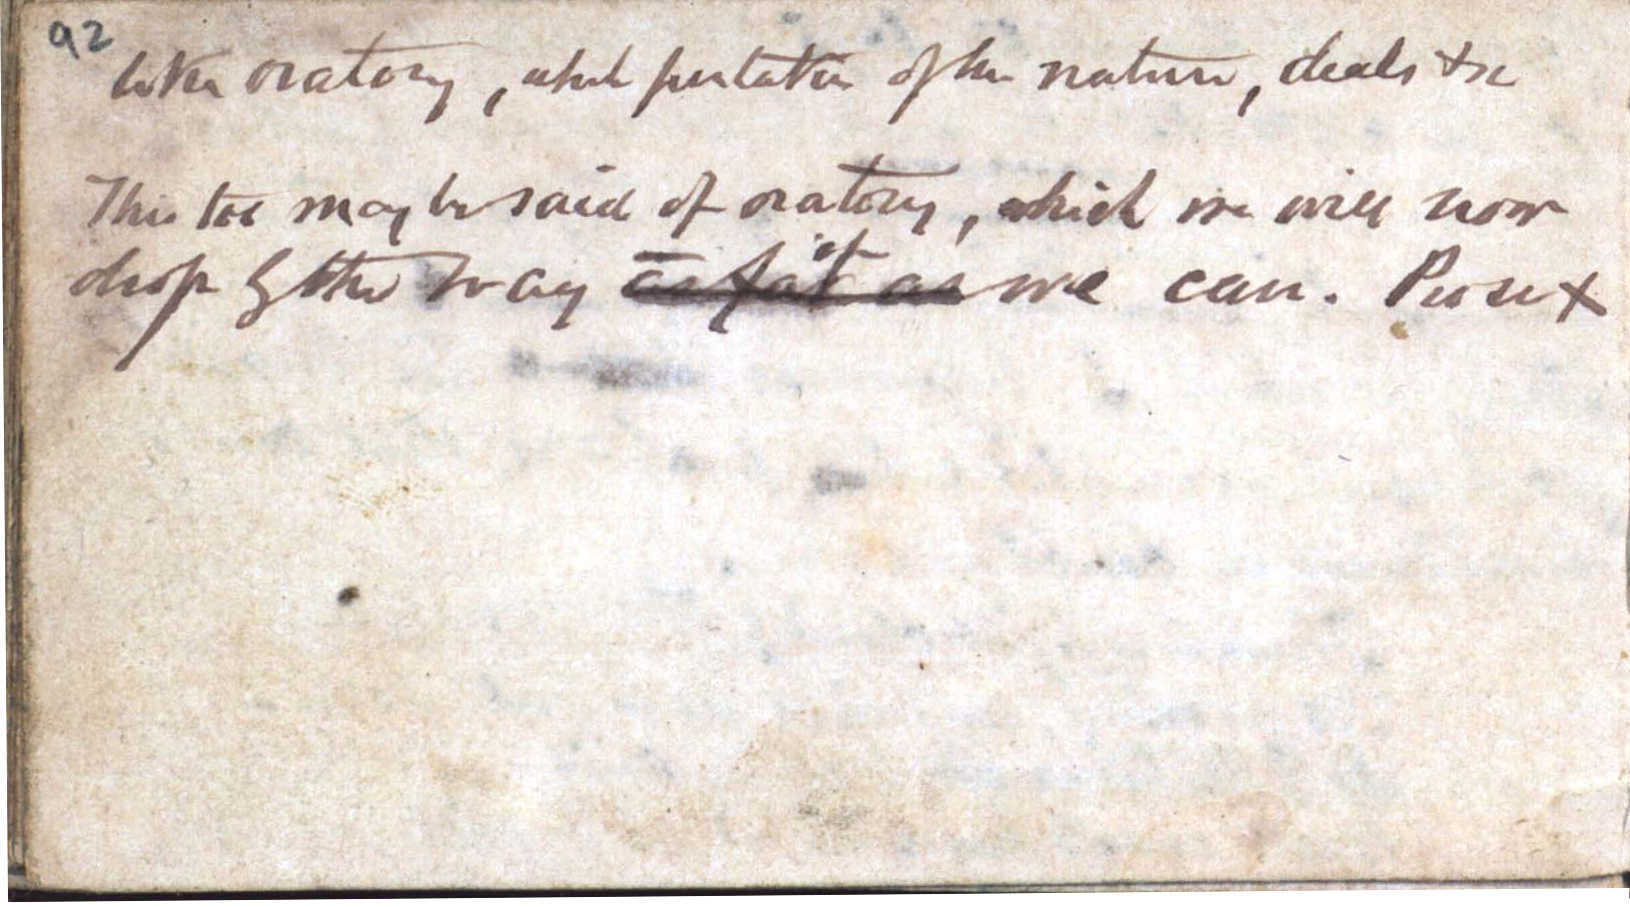 92
like oratory, which partakes of her nature, deals &c
This too may be said of oratory, which we will now
drop by the way as far as if we can. Prose &